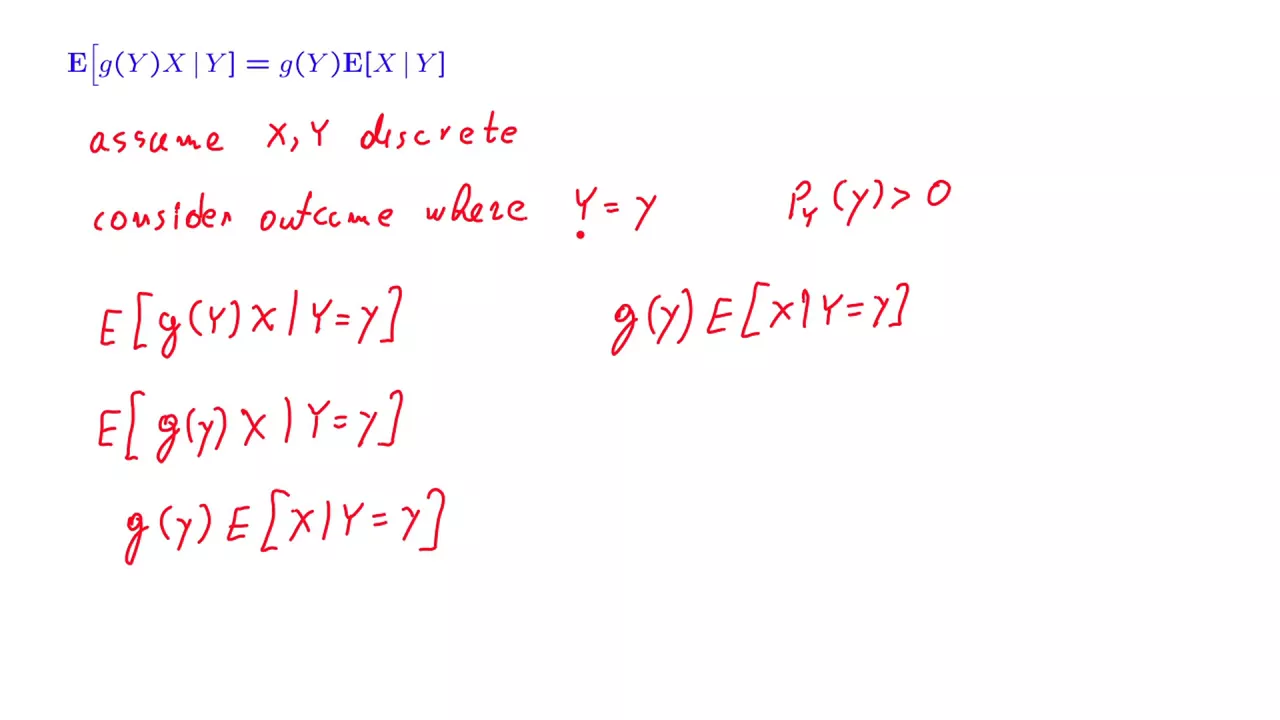 E[g(Y)X | Y] = g(Y)E[X | Y]
assume X, Y discrete
consider outcome where Y = y P_Y(y) > 0
E[g(Y)X | Y = y] g(y) E[X | Y = y]
E[g(y)X | Y = y]
g(y) E[X | Y = y]